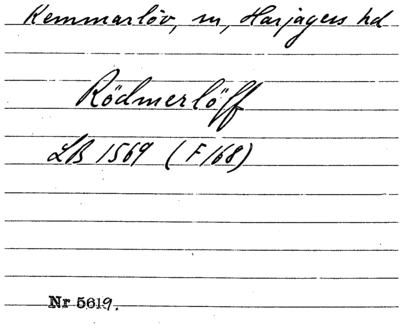 Remmarlöv, sn, Harjagers hd
Rödmerlöff
LB 1569 (F 168)
Nr 5619.